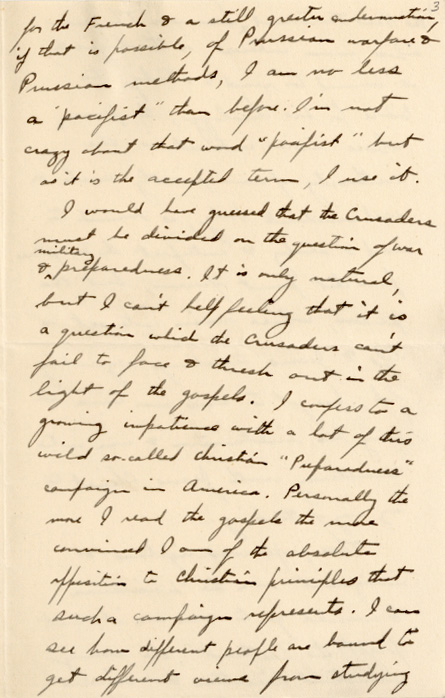 3
for the French & a still greater condemnation,
if that is possible, of Prussian warfare &
Prussian methods, I am no less
a "pacifist" than before. I'm not
crazy about that word "pacifist" but
as it is the accepted term, I use it.
I would have guessed that the Crusaders
must be divided on the question of war
military
& preparedness. It is only natural,
but I can't help feeling that it is
a question which the Crusaders can't
fail to face & thresh out in the
light of the gospels. I confess to a
growing impatience with a lot of this
wild so-called Christian "Preparedness"
campaign in America. Personally the
more I read the gospels the more
convinced I am of the absolute
opposition to Christian principles that
such a campaign represents. I can
see how different people are bound to
get different views from studying